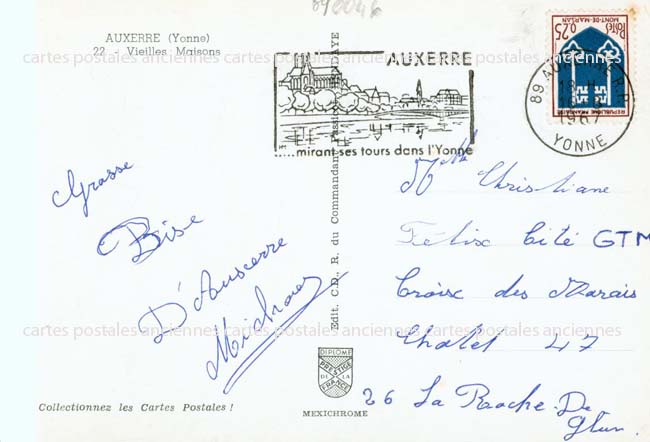 AUXERRE (Yonne)
22 - Vieilles Maisons
AUXERRE
....mirant ses tours dans l'Yonne
Postes
0,25
MONT-DE-MARSAN
REPUBLIQUE FRANÇAISE
89 AUXERRE R.P.
18 H
1967
YONNE
Grosse
Bise
D'Auxerre
Edit. C.D.R. du Commandant
Mlle Christiane
Félix Cité GTM
Croix des Marais
Chalet 47
26 La Roche-De
Glun.
DIPLOME
PRESTIGE
DE LA
FRANCE
MEXICHROME
Collectionnez les Cartes Postales !
cartes postales anciennes cartes postales anciennes cartes postales anciennes
cartes postales anciennes cartes postales anciennes cartes postales anciennes